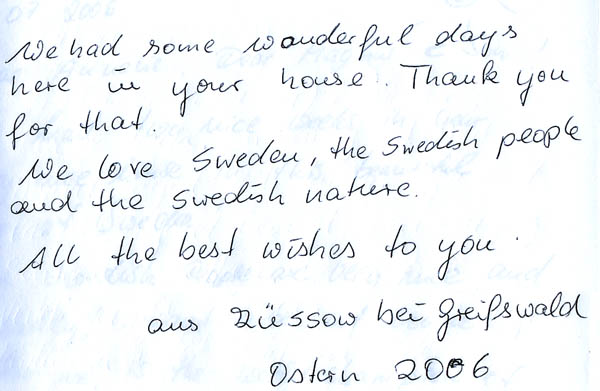 We had some wonderful days
here in your house. Thank you
for that.
We love Sweden, the Swedish people
and the Swedish nature.
All the best wishes to you.
aus Züssow bei Greifswald
Ostern 2006